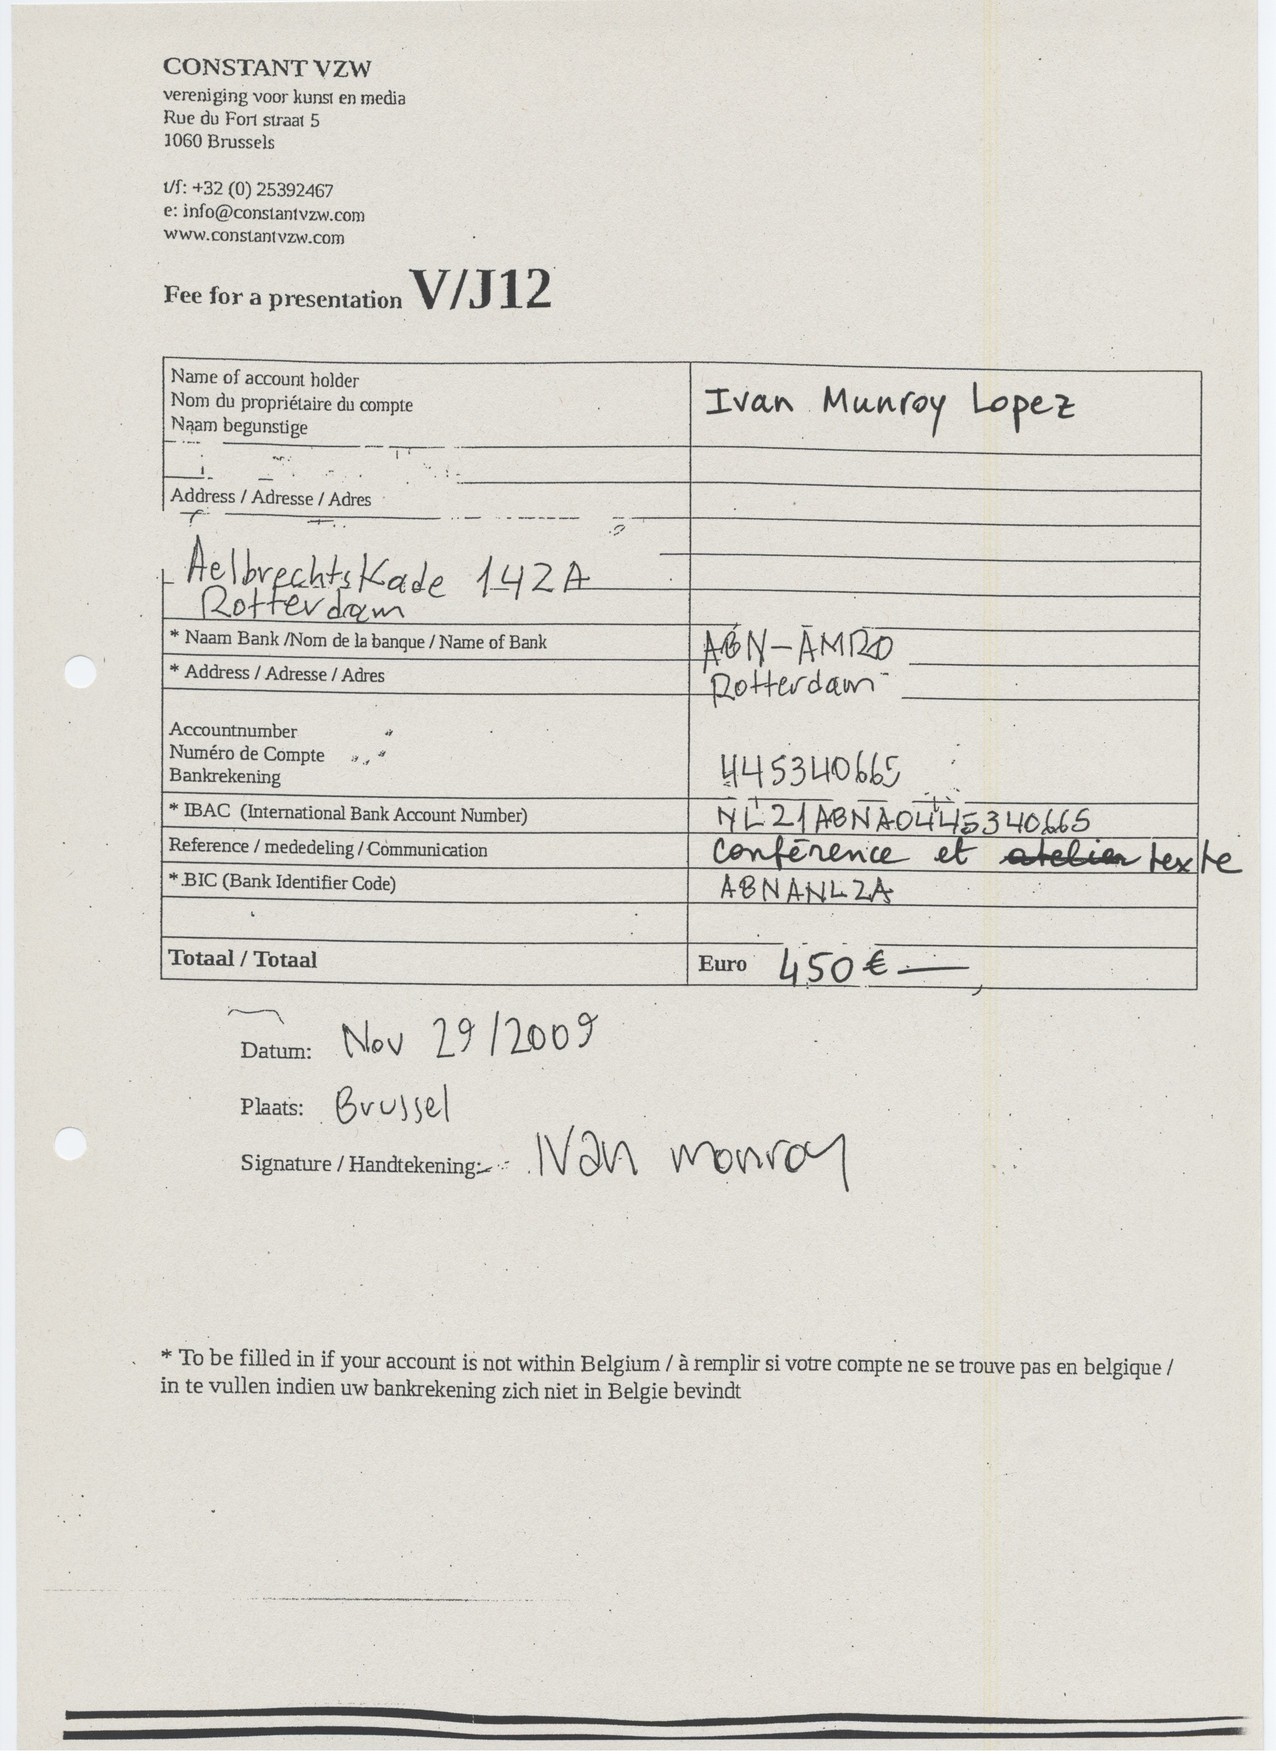 CONSTANT VZW
vereniging voor kunst en media
Rue du Fort straat 5
1060 Brussels
t/f: +32 (0) 25392467
e: info@constantvzw.com
www.constantvzw.com
Fee for a presentation V/J12
Name of account holder
Nom du propriétaire du compte
Naam begunstige
Ivan Munroy Lopez
Address / Adresse / Adres
Aelbrechtskade 142A
Rotterdam
* Naam Bank /Nom de la banque / Name of Bank ABN-AMRO
* Address / Adresse / Adres Rotterdam
Accountnumber
Numéro de Compte
Bankrekening
445340665
* IBAC (International Bank Account Number) NL21ABNA0445340665
Reference / mededeling / Communication conférence et atelier texte
* BIC (Bank Identifier Code) ABNANL2A
Totaal / Totaal Euro 450 €
Datum: Nov 29/2009
Plaats: Brussel
Signature / Handtekening: Ivan monroy
* To be filled in if your account is not within Belgium / à remplir si votre compte ne se trouve pas en belgique /
in te vullen indien uw bankrekening zich niet in Belgie bevindt